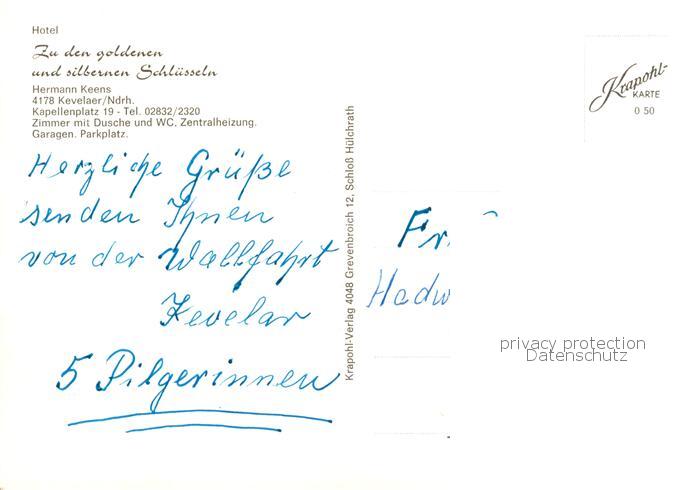 Hotel
Zu den goldenen
und silbernen Schlüsseln
Hermann Keens
4178 Kevelaer/Ndrh.
Kapellenplatz 19 - Tel. 02832/2320
Zimmer mit Dusche und WC. Zentralheizung.
Garagen. Parkplatz.
Herzliche Grüße
senden Ihnen
von der Wallfahrt
Kevelar
5 Pilgerinnen
Krapohl-Verlag 4048 Grevenbroich 12, Schloß Hülchrath
Krapohl-
KARTE
0 50
Fr.
Hadw
privacy protection
Datenschutz